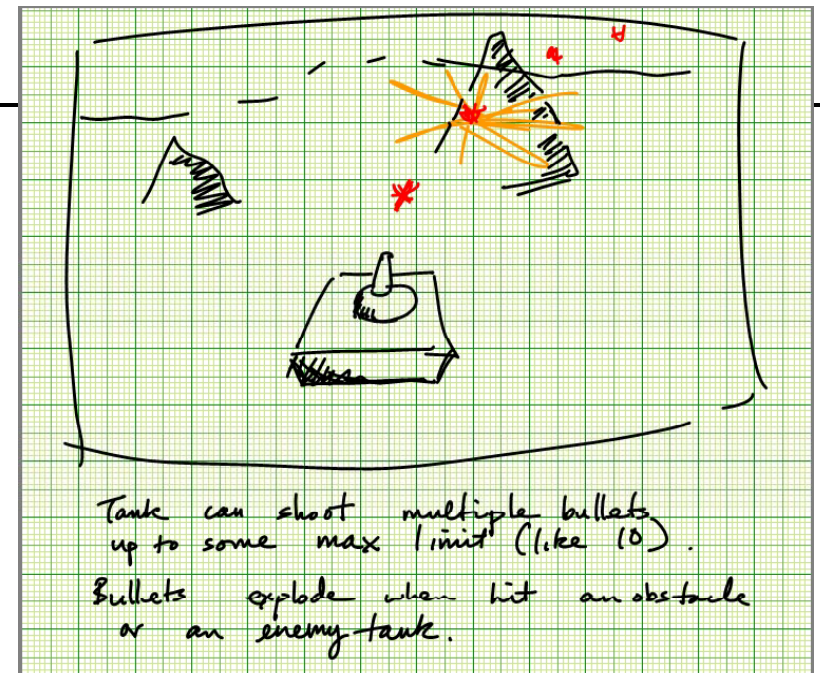 Tank can shoot multiple bullets
up to some max limit (like 10).
Bullets explode when hit an obstacle
or an enemy tank.